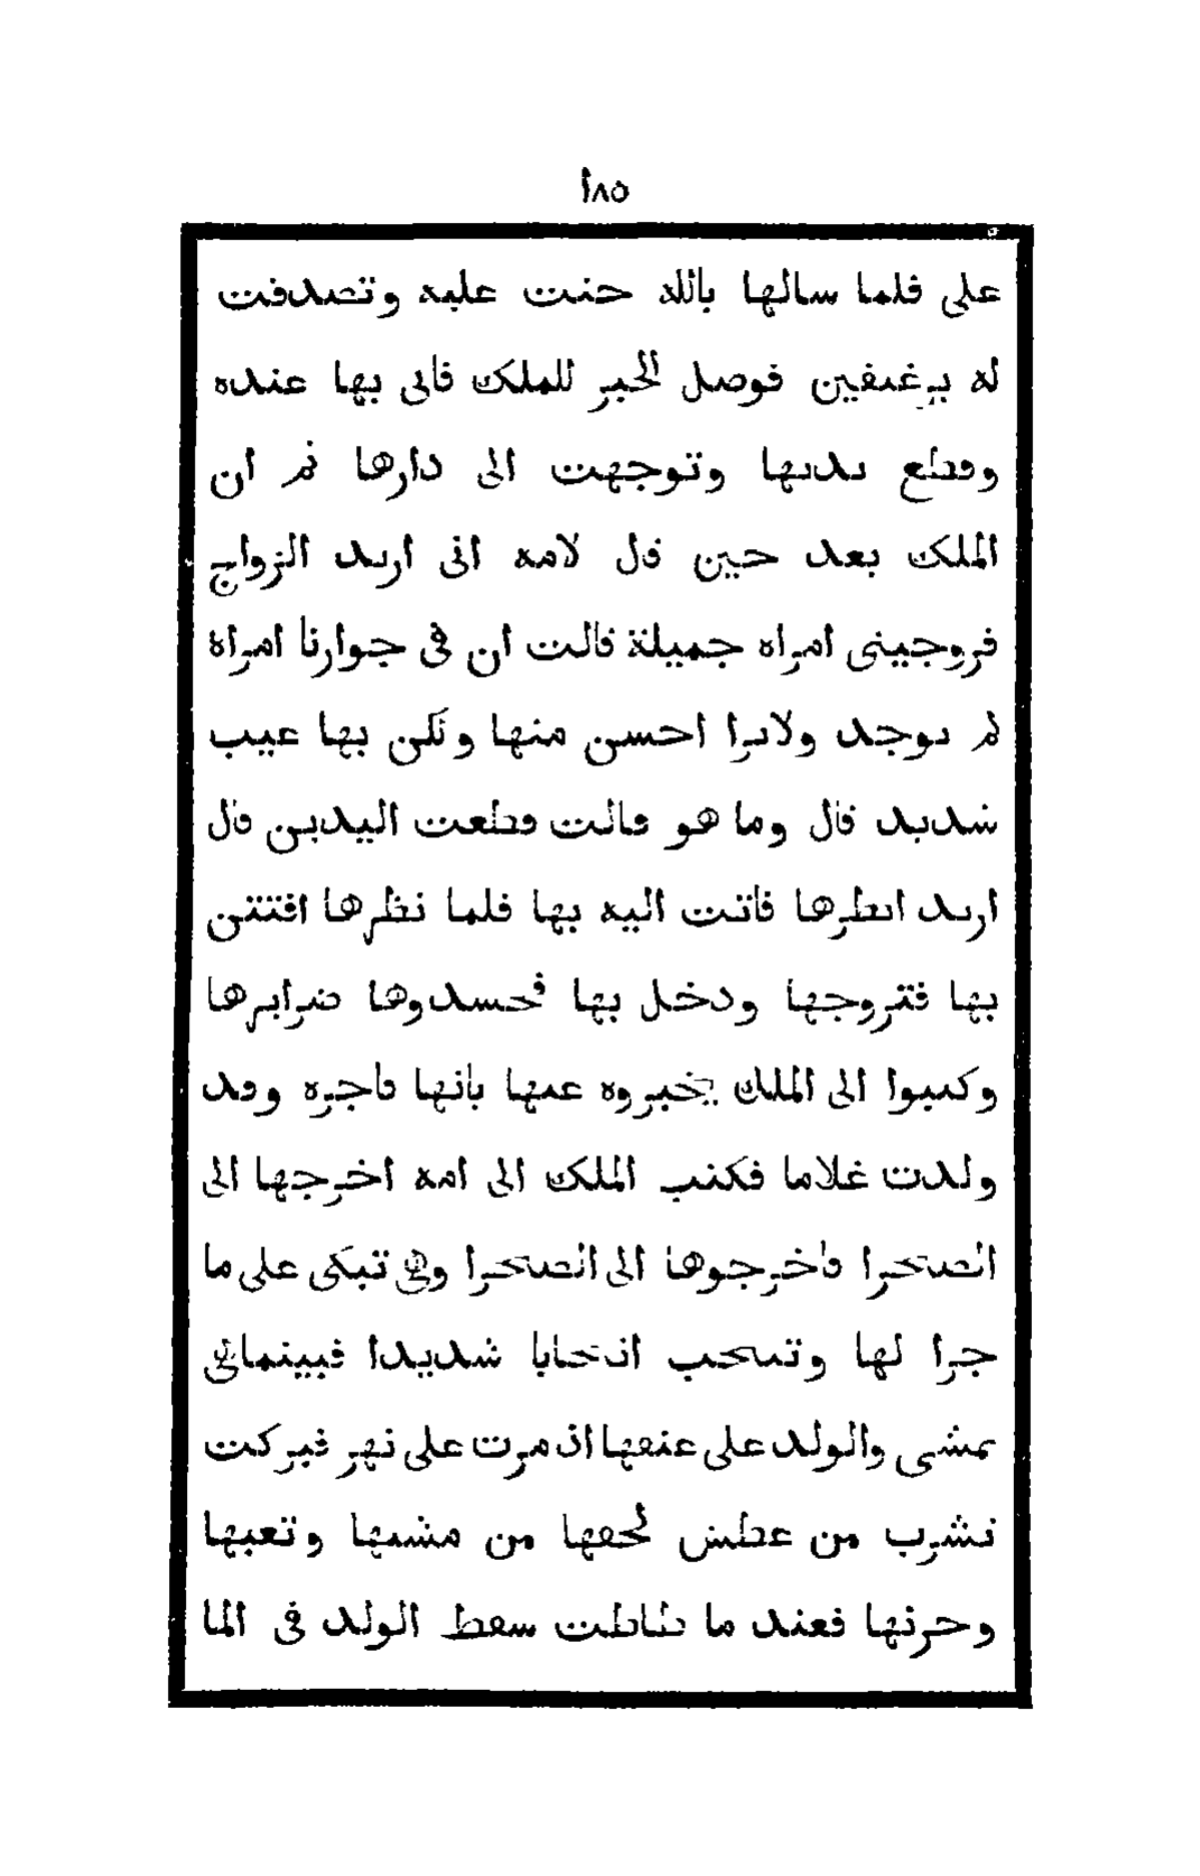 ١٨٥
على فلما سالها بالله حنت عليه وتصدقت
له برغيفين فوصل الخبر للملك فاتى بها عنده
وقطع يديها وتوجهت الى دارها ثم ان
الملك بعد حين قال لامه انى اريد الزواج
فزوجينى امراه جميلة قالت ان فى جوارنا امراة
لم يوجد ولايرا احسن منها ولكن بها عيب
شديد قال وما هو قالت قطعت اليدين قال
اريد انظرها فاتت اليه بها فلما نظرها افتتن
بها فتزوجها ودخل بها فحسدوها ضرايرها
وكتبوا الى الملك يخبروه عنها بانها فاجره وقد
ولدت غلاما فكتب الملك الى امه اخرجها الى
الصحرا فاخرجوها الى الصحرا وهى تبكى على ما
جرا لها وتنتحب انتحابا شديدا فبينماهى
تمشى والولد على عنقها اذ مرت على نهر فبركت
تشرب من عطش لحقها من مشيها وتعبها
وحزنها فعند ما طاطت سقط الولد فى الما